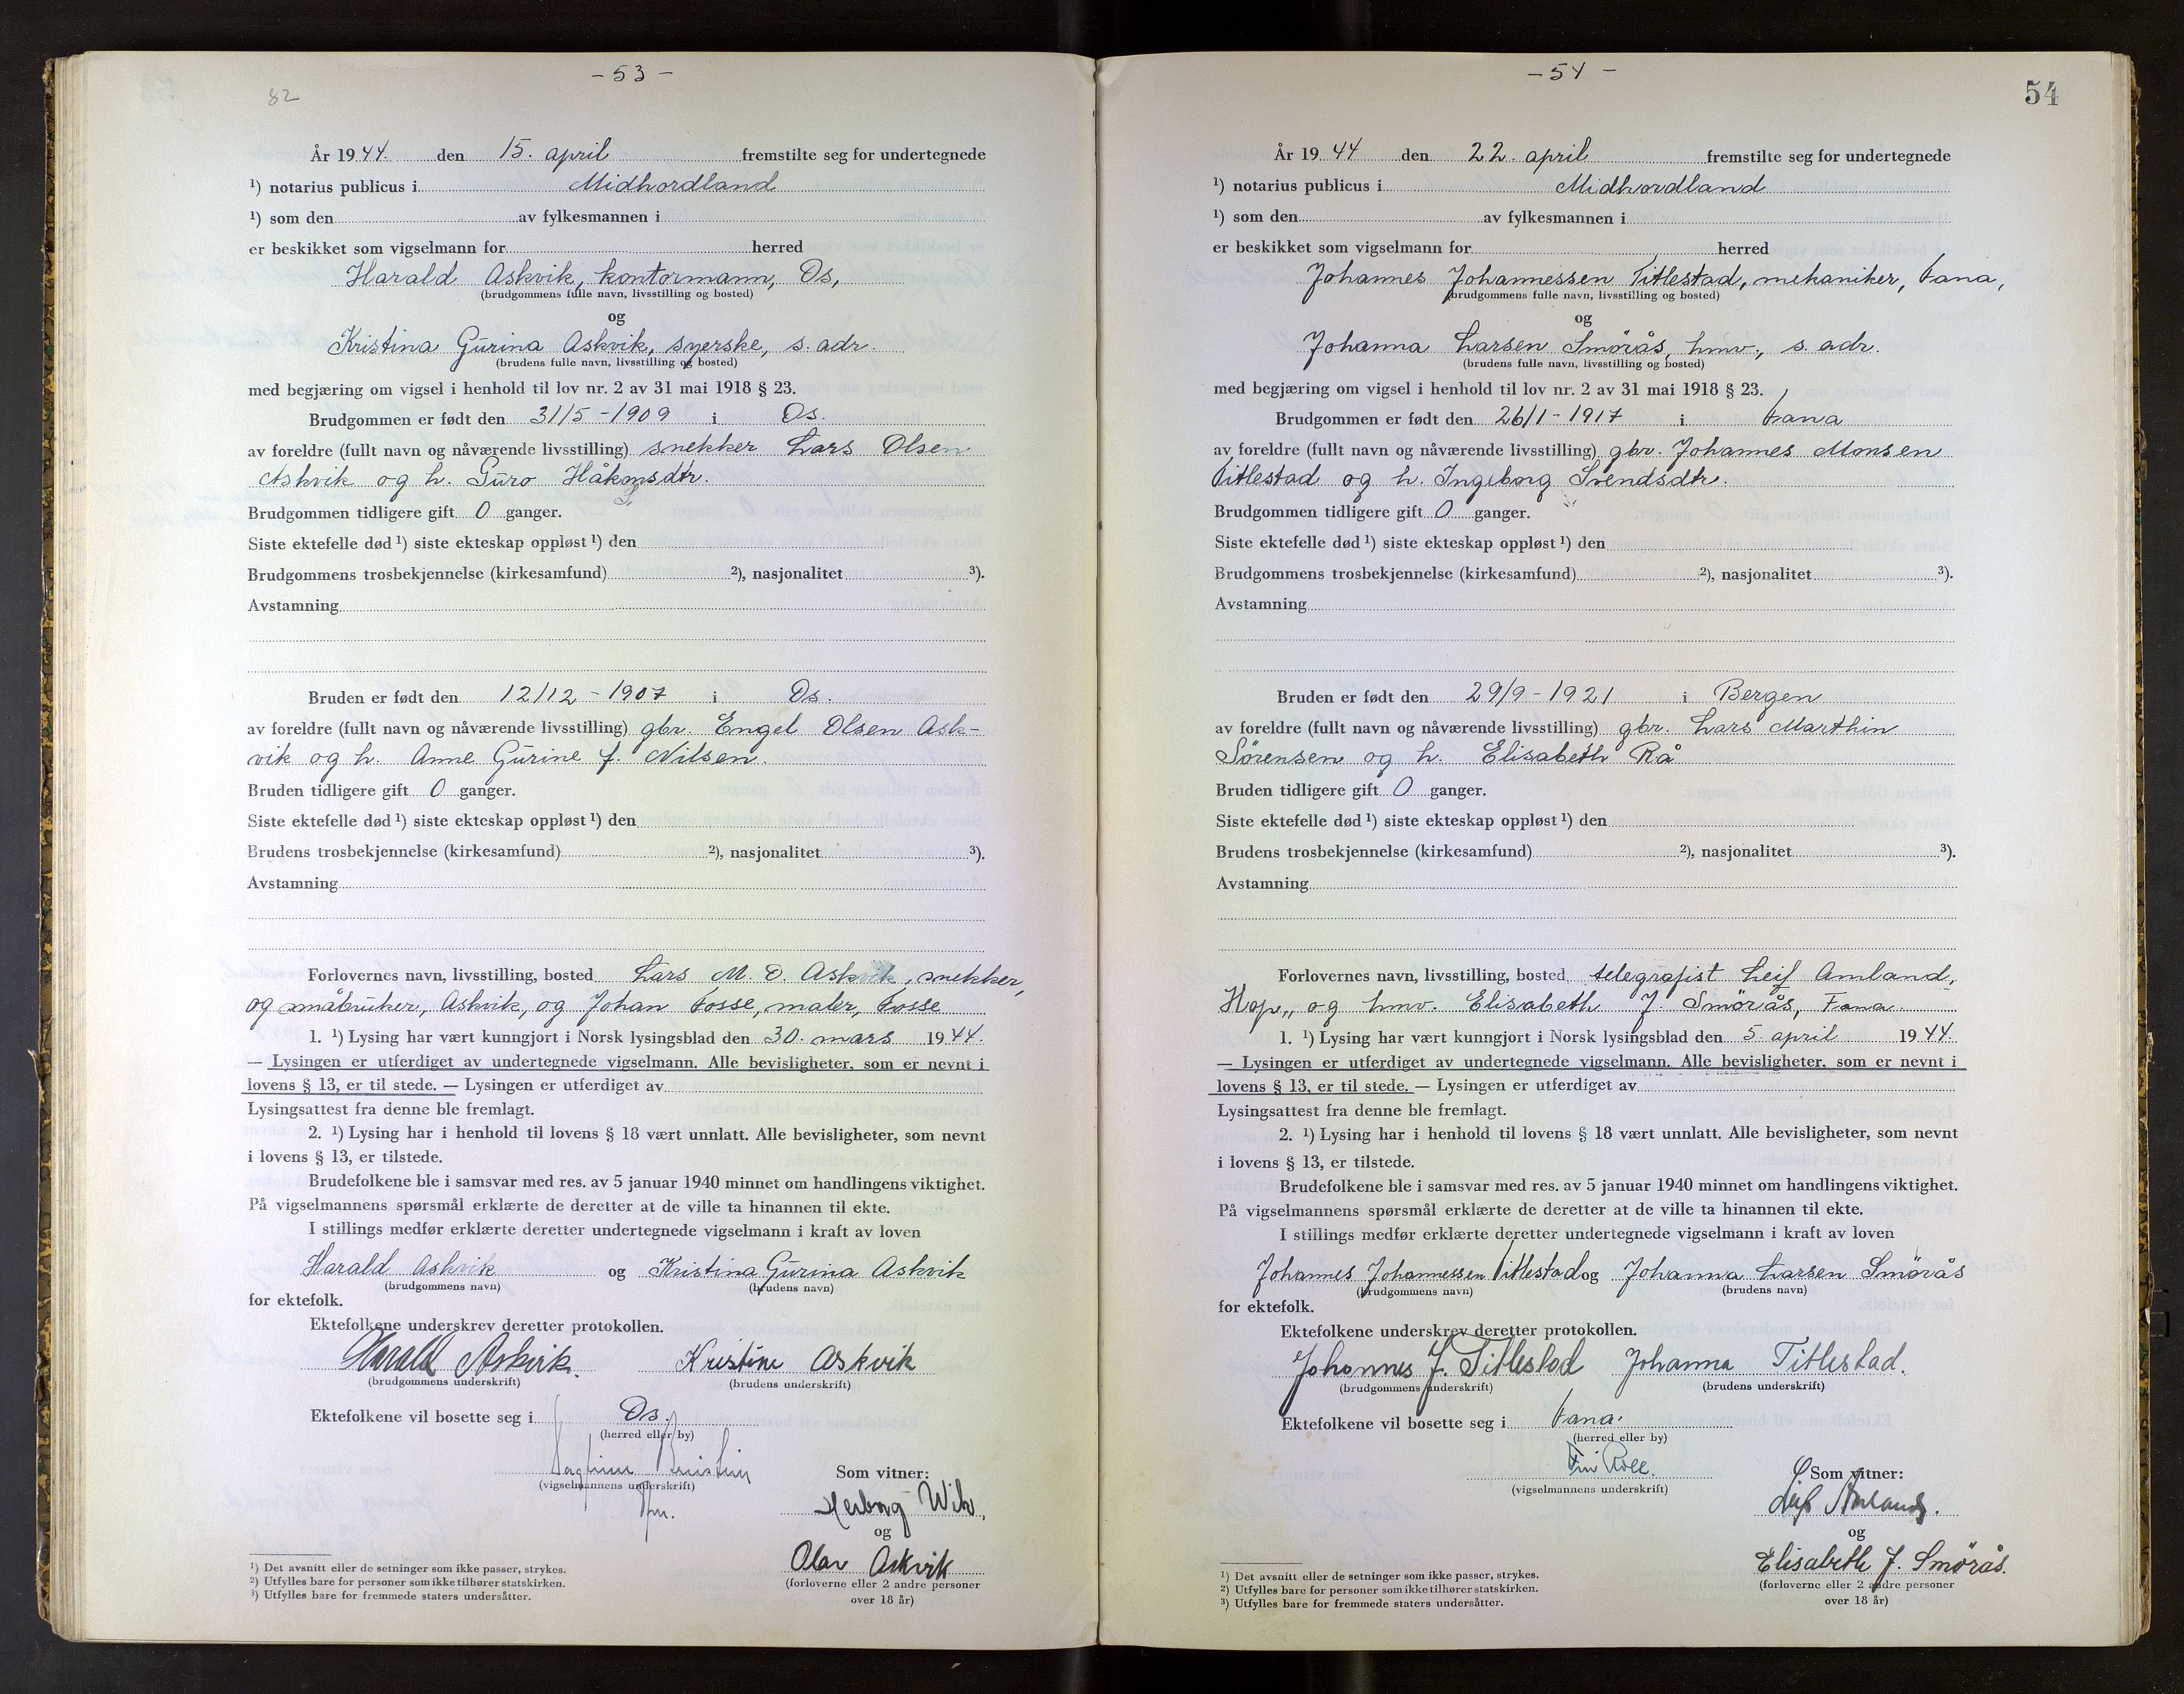 - 53 -
82
År 1944. den 15. april fremstilte seg for undertegnede
¹) notarius publicus i Midhordland
¹) som den av fylkesmannen i
er beskikket som vigselmann for herred
Harald Askvik, kontormann, Os,
(brudgommens fulle navn, livsstilling og bosted)
og
Kristina Gurina Askvik, syerske, s. adr.
(brudens fulle navn, livsstilling og bosted)
med begjæring om vigsel i henhold til lov nr. 2 av 31 mai 1918 § 23.
Brudgommen er født den 31/5 - 1909 i Os.
av foreldre (fullt navn og nåværende livsstilling) snekker Lars Olsen
Askvik og h. Guro Håkonsdtr.
Brudgommen tidligere gift 0 ganger.
Siste ektefelle død ¹) siste ekteskap oppløst ¹) den
Brudgommens trosbekjennelse (kirkesamfund) ²), nasjonalitet ³).
Avstamning
Bruden er født den 12/12 - 1907 i Os.
av foreldre (fullt navn og nåværende livsstilling) gbr. Engel Olsen Ask-
vik og h. Anne Gurine f. Nilsen.
Bruden tidligere gift 0 ganger.
Siste ektefelle død ¹) siste ekteskap oppløst ¹) den
Brudens trosbekjennelse (kirkesamfund) ²), nasjonalitet ³).
Avstamning
Forlovernes navn, livsstilling, bosted Lars M. O. Askvik, snekker,
og småbruker, Askvik, og Johan Fosse, maler, Fosse
1. ¹) Lysing har vært kunngjort i Norsk lysingsblad den 30. mars 1944.
— Lysingen er utferdiget av undertegnede vigselmann. Alle bevisligheter, som er nevnt i
lovens § 13, er til stede. — Lysingen er utferdiget av
Lysingsattest fra denne ble fremlagt.
2. ¹) Lysing har i henhold til lovens § 18 vært unnlatt. Alle bevisligheter, som nevnt
i lovens § 13, er tilstede.
Brudefolkene ble i samsvar med res. av 5 januar 1940 minnet om handlingens viktighet.
På vigselmannens spørsmål erklærte de deretter at de ville ta hinannen til ekte.
I stillings medfør erklærte deretter undertegnede vigselmann i kraft av loven
Harald Askvik og Kristina Gurina Askvik
(brudgommens navn) (brudens navn)
for ektefolk.
Ektefolkene underskrev deretter protokollen.
Harald Askvik. Kristine Askvik
(brudgommens underskrift) (brudens underskrift)
Ektefolkene vil bosette seg i Os.
(herred eller by)
(vigselmannens underskrift)
Som vitner:
Herborg Wik,
og
Olav Askvik
(forloverne eller 2 andre personer
over 18 år)
¹) Det avsnitt eller de setninger som ikke passer, strykes.
²) Utfylles bare for personer som ikke tilhører statskirken.
³) Utfylles bare for fremmede staters undersåtter.
- 54 -
54
År 1944 den 22. april fremstilte seg for undertegnede
¹) notarius publicus i Midhordland
¹) som den av fylkesmannen i
er beskikket som vigselmann for herred
Johannes Johannessen Titlestad, mekaniker, Fana,
(brudgommens fulle navn, livsstilling og bosted)
og
Johanna Larsen Smörås, hmv., s. adr.
(brudens fulle navn, livsstilling og bosted)
med begjæring om vigsel i henhold til lov nr. 2 av 31 mai 1918 § 23.
Brudgommen er født den 26/1 - 1917 i Fana
av foreldre (fullt navn og nåværende livsstilling) gbr. Johannes Monsen
Titlestad og h. Ingeborg Svendsdtr.
Brudgommen tidligere gift 0 ganger.
Siste ektefelle død ¹) siste ekteskap oppløst ¹) den
Brudgommens trosbekjennelse (kirkesamfund) ²), nasjonalitet ³).
Avstamning
Bruden er født den 29/9 - 1921 i Bergen
av foreldre (fullt navn og nåværende livsstilling) gbr. Lars Marthin
Sörensen og h. Elisabeth Rå
Bruden tidligere gift 0 ganger.
Siste ektefelle død ¹) siste ekteskap oppløst ¹) den
Brudens trosbekjennelse (kirkesamfund) ²), nasjonalitet ³).
Avstamning
Forlovernes navn, livsstilling, bosted telegrafist Leif Amland,
Hop,, og hmv. Elisabeth J. Smörås, Fana.
1. ¹) Lysing har vært kunngjort i Norsk lysingsblad den 5. april 1944.
— Lysingen er utferdiget av undertegnede vigselmann. Alle bevisligheter, som er nevnt i
lovens § 13, er til stede. — Lysingen er utferdiget av
Lysingsattest fra denne ble fremlagt.
2. ¹) Lysing har i henhold til lovens § 18 vært unnlatt. Alle bevisligheter, som nevnt
i lovens § 13, er tilstede.
Brudefolkene ble i samsvar med res. av 5 januar 1940 minnet om handlingens viktighet.
På vigselmannens spørsmål erklærte de deretter at de ville ta hinannen til ekte.
I stillings medfør erklærte deretter undertegnede vigselmann i kraft av loven
Johannes Johannessen Titlestad og Johanna Larsen Smörås
(brudgommens navn) (brudens navn)
for ektefolk.
Ektefolkene underskrev deretter protokollen.
Johannes J. Titlestad Johanna Titlestad.
(brudgommens underskrift) (brudens underskrift)
Ektefolkene vil bosette seg i Fana.
(herred eller by)
(vigselmannens underskrift)
Som vitner:
Leif Amland.
og
Elisabeth J. Smörås.
(forloverne eller 2 andre personer
over 18 år)
¹) Det avsnitt eller de setninger som ikke passer, strykes.
²) Utfylles bare for personer som ikke tilhører statskirken.
³) Utfylles bare for fremmede staters undersåtter.